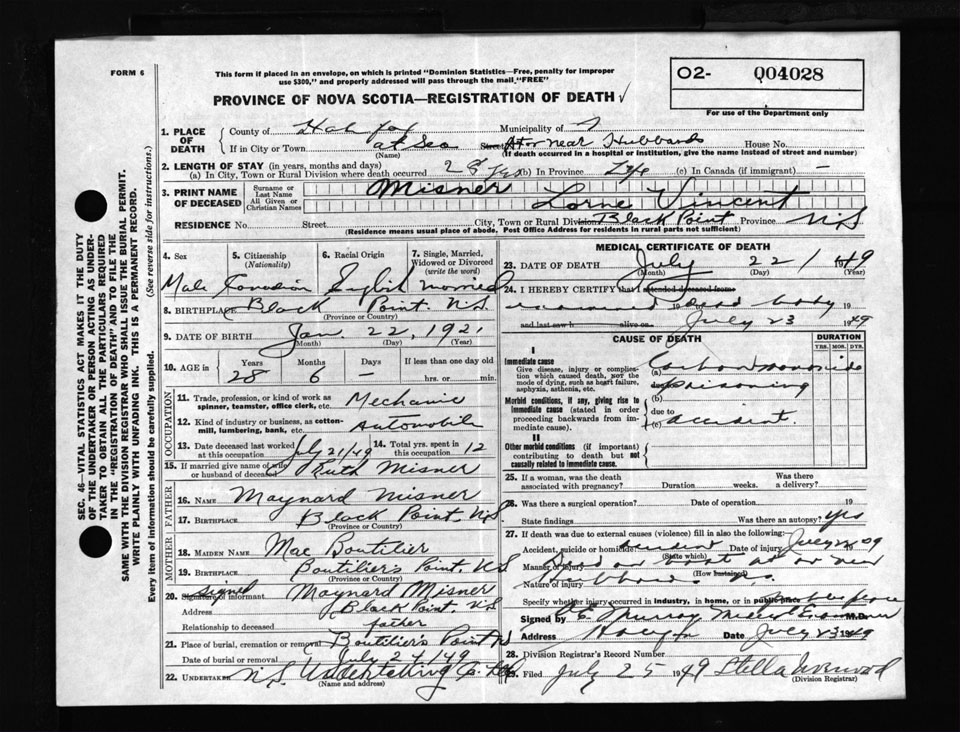 FORM 6
This form if placed in an envelope, on which is printed "Dominion Statistics—Free, penalty for improper
use $300," and properly addressed will pass through the mail "FREE"
O2- Q04028
For use of the Department only
PROVINCE OF NOVA SCOTIA—REGISTRATION OF DEATH ✓
1. PLACE OF DEATH
County of Halifax Municipality of
If in City or Town at Sea Street At or near Hubbards House No.
(Name) (If death occurred in a hospital or institution, give the name instead of street and number)
2. LENGTH OF STAY (in years, months and days)
(a) In City, Town or Rural Division where death occurred 28 yrs (b) In Province Life (c) In Canada (if immigrant) —
3. PRINT NAME OF DECEASED
Surname or Last Name Misner
All Given or Christian Names Lorne Vincent
RESIDENCE No. Street City, Town or Rural Division Black Point Province N.S
(Residence means usual place of abode. Post Office Address for residents in rural parts not sufficient)
4. Sex 5. Citizenship (Nationality) 6. Racial Origin 7. Single, Married, Widowed or Divorced (write the word)
Male Canadian English married
8. BIRTHPLACE Black Point. N.S.
(Province or Country)
9. DATE OF BIRTH Jan. 22, 1921
(Month) (Day) (Year)
10. AGE in Years Months Days If less than one day old
28 6 — hrs. or min.
OCCUPATION
11. Trade, profession, or kind of work as spinner, teamster, office clerk, etc. Mechanic
12. Kind of industry or business, as cotton-mill, lumbering, bank, etc. Automobile
13. Date deceased last worked at this occupation July 21/49 14. Total yrs. spent in this occupation 12
15. If married give name of wife or husband of deceased Ruth Misner
FATHER
16. NAME Maynard Misner
17. BIRTHPLACE Black Point, N.S
(Province or Country)
MOTHER
18. MAIDEN NAME Mae Boutilier
19. BIRTHPLACE Boutiliers Point N.S
(Province or Country)
20. Signature of informant signed Maynard Misner
Address Black Point, N.S
Relationship to deceased father
21. Place of burial, cremation or removal Boutilier's Point NS
Date of burial or removal July 24/49
22. UNDERTAKER N.S Undertaking Co. Ltd
(Name and address)
MEDICAL CERTIFICATE OF DEATH
23. DATE OF DEATH July 22 1949
(Month) (Day) (Year)
24. I HEREBY CERTIFY that I attended deceased from
19 dead body 19
and last saw h alive on July 23 1949
CAUSE OF DEATH DURATION
YRS. MOS. DYS.
I
Immediate cause
Give disease, injury or complication which caused death, not the mode of dying, such as heart failure, asphyxia, asthenia, etc.
(a) Carbon monoxide
poisoning
Morbid conditions, if any, giving rise to Immediate cause (stated in order proceeding backwards from immediate cause).
(b)
due to
(c) accident.
II
Other morbid conditions (if important) contributing to death but not causally related to immediate cause.
25. If a woman, was the death associated with pregnancy? Duration weeks. Was there a delivery?
26. Was there a surgical operation? Date of operation 19
State findings Was there an autopsy? yes
27. If death was due to external causes (violence) fill in also the following:
Accident, suicide or homicide? accident Date of injury July
(State which)
Manner of injury on boat at or near
(How sustained)
Nature of injury Hubbards N.S.
Specify whether injury occurred in industry, in home, or in public place
Signed by Medical Examiner M.D.
Address Halifax Date July 23 1949
28. Division Registrar's Record Number
29. Filed July 25 1949 Stella
(Division Registrar)
SEC. 46 VITAL STATISTICS ACT MAKES IT THE DUTY
OF THE UNDERTAKER OR PERSON ACTING AS UNDER-
TAKER TO OBTAIN ALL THE PARTICULARS REQUIRED
IN THE "REGISTRATION OF DEATH" AND TO FILE THE
SAME WITH THE DIVISION REGISTRAR WHO SHALL ISSUE THE BURIAL PERMIT.
WRITE PLAINLY WITH UNFADING INK. THIS IS A PERMANENT RECORD.
Every item of information should be carefully supplied. (See reverse side for instructions.)